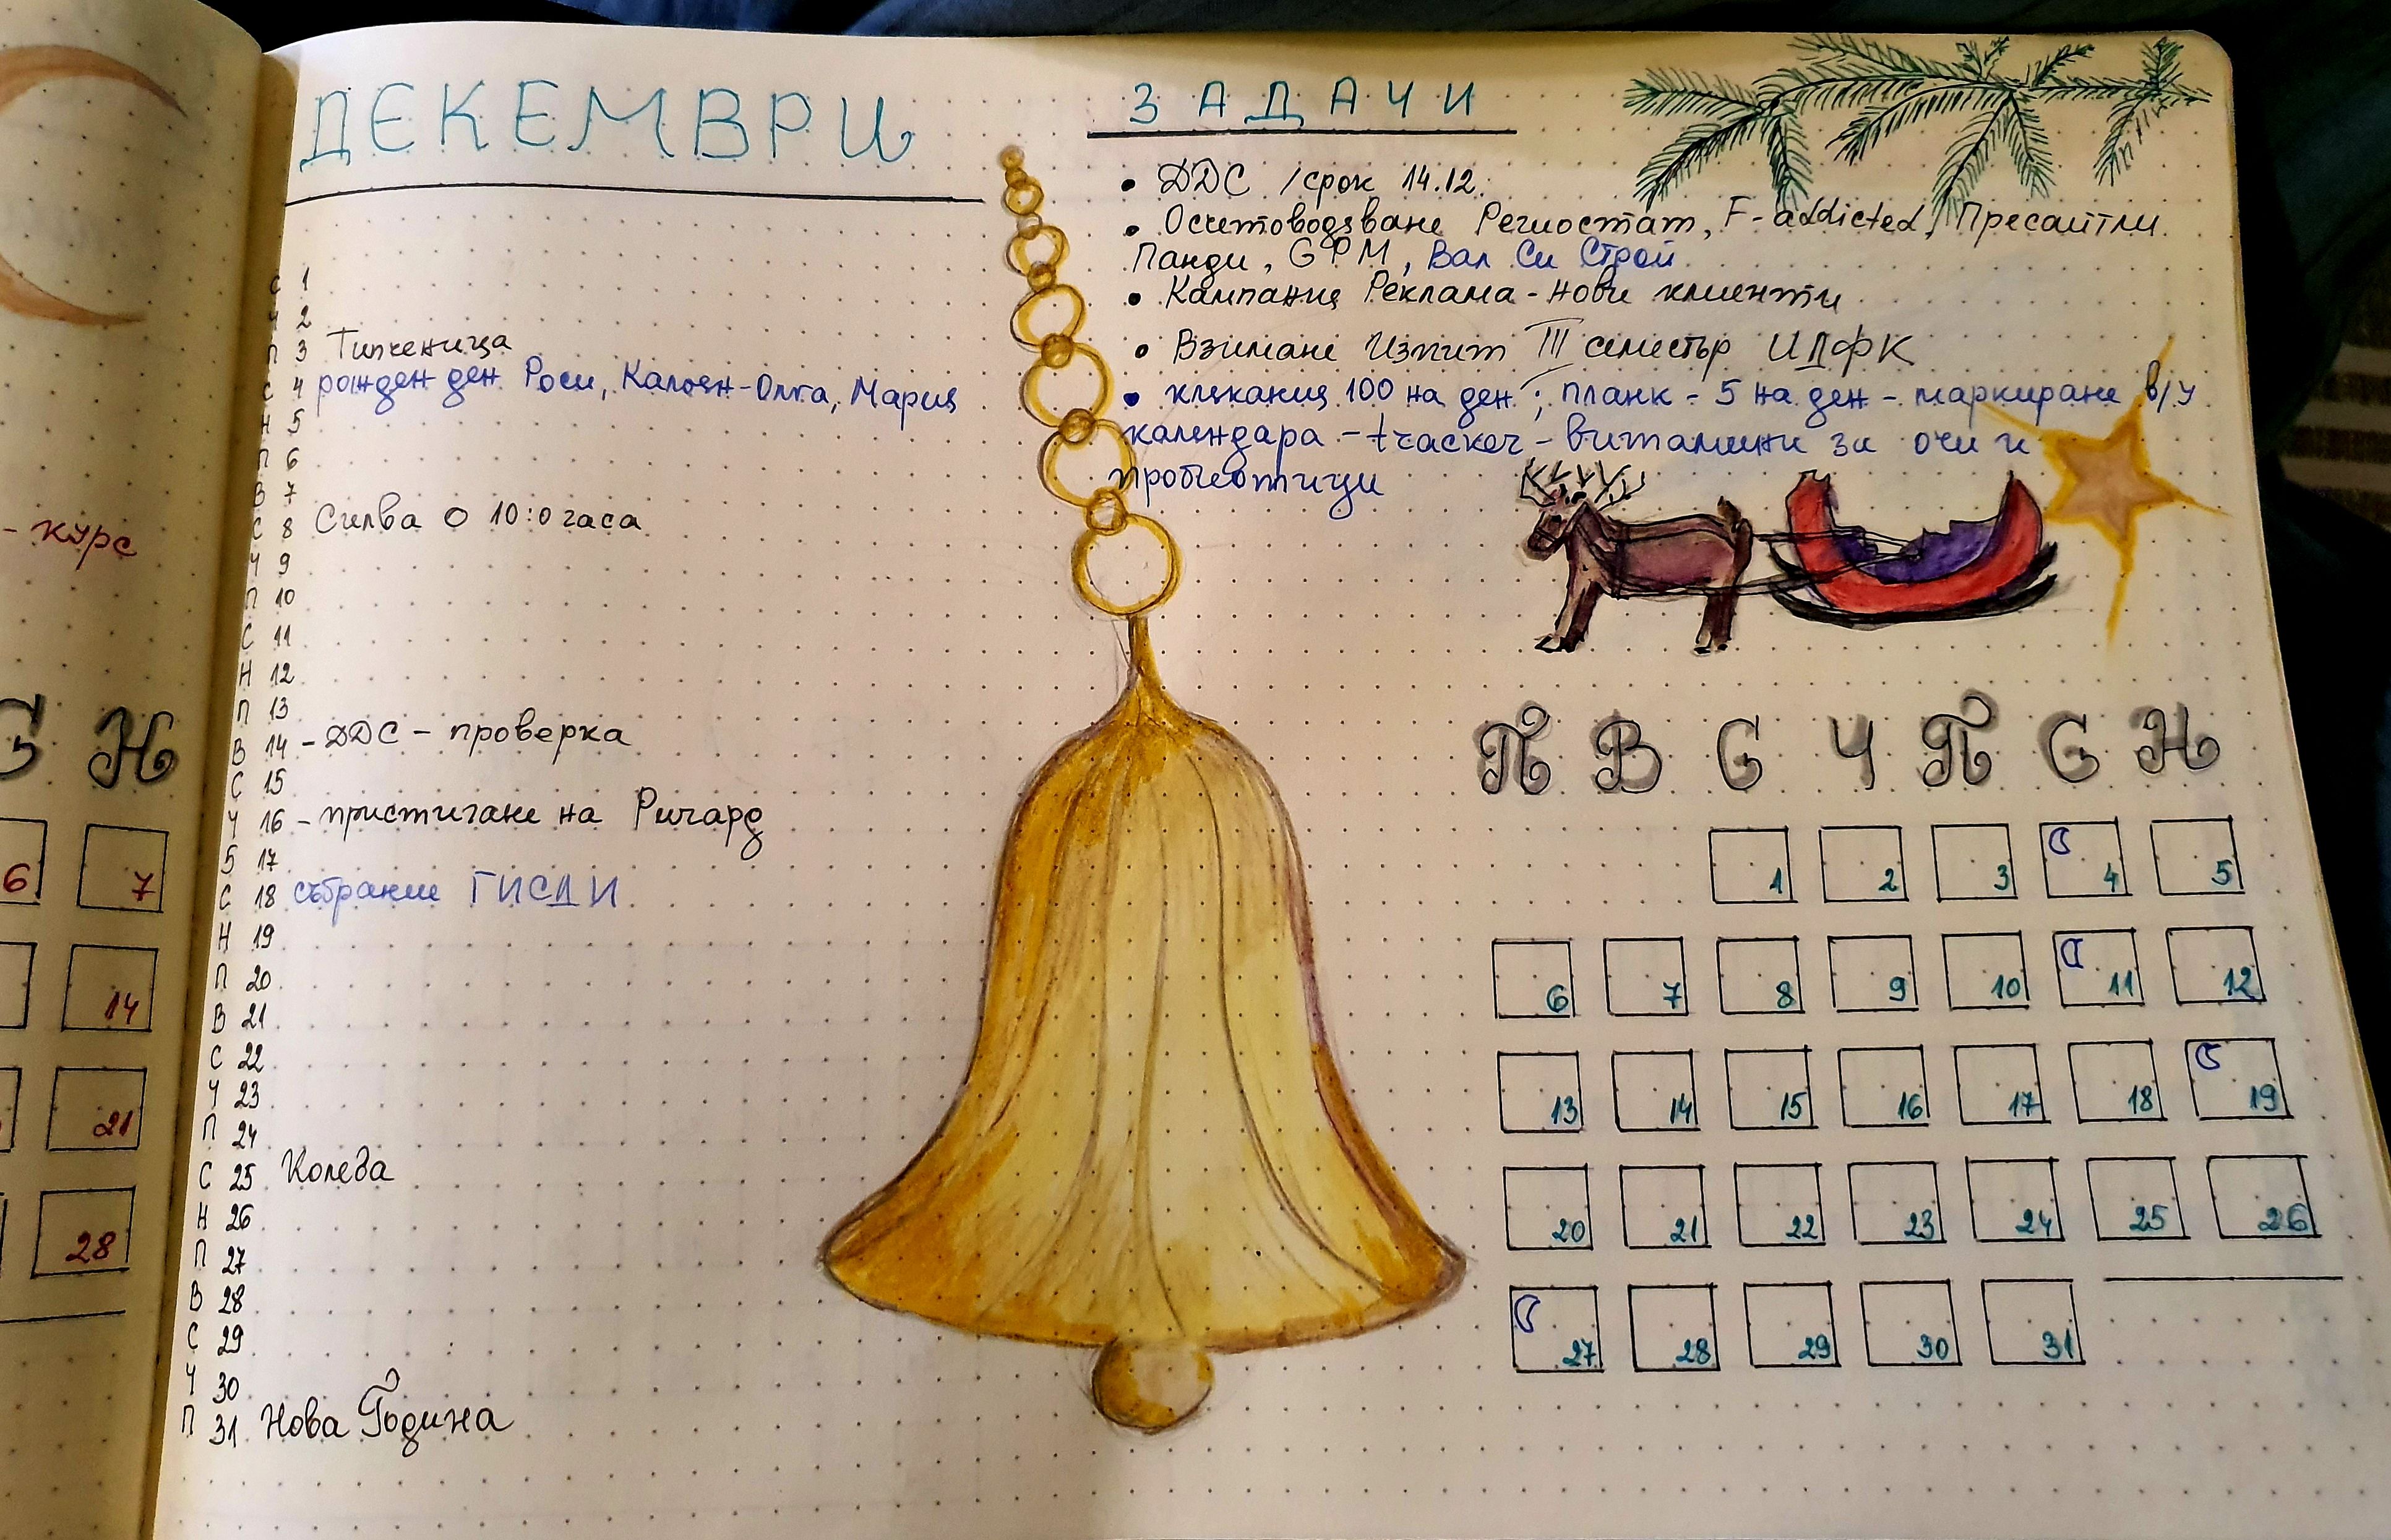 ДЕКЕМВРИ
С 1
Ч 2
П 3 Типченица
С 4 рожден ден Роси, Калоян-Олга, Мария
Н 5
П 6
В 7
С 8 Силва О 10:0 часа
Ч 9
П 10
С 11
Н 12
П 13
В 14 - ДДС - проверка
С 15
Ч 16 - пристигане на Ричард
5 17
С 18 събрание ГИСДИ
Н 19
П 20
В 21
С 22
Ч 23
П 24
С 25 Коледа
Н 26
П 27
В 28
С 29
Ч 30
П 31 Нова Година
ЗАДАЧИ
• ДДС /срок 14.12.
• Осчетоводяване Региостат, F-addicted, Пресайтли
Панди, GPM, Вал Си Строй
• Кампания Реклама - нови клиенти
• Взимане Изпит III семестър ИДФК
• клякания 100 на ден; планк - 5 на ден - маркиране в/у
календара - tracker - витамини за очи и
пробиотици
П В С Ч П С Н
1 2 3 4 5
6 7 8 9 10 11 12
13 14 15 16 17 18 19
20 21 22 23 24 25 26
27 28 29 30 31
- курс
С Н
6 7
14
21
28